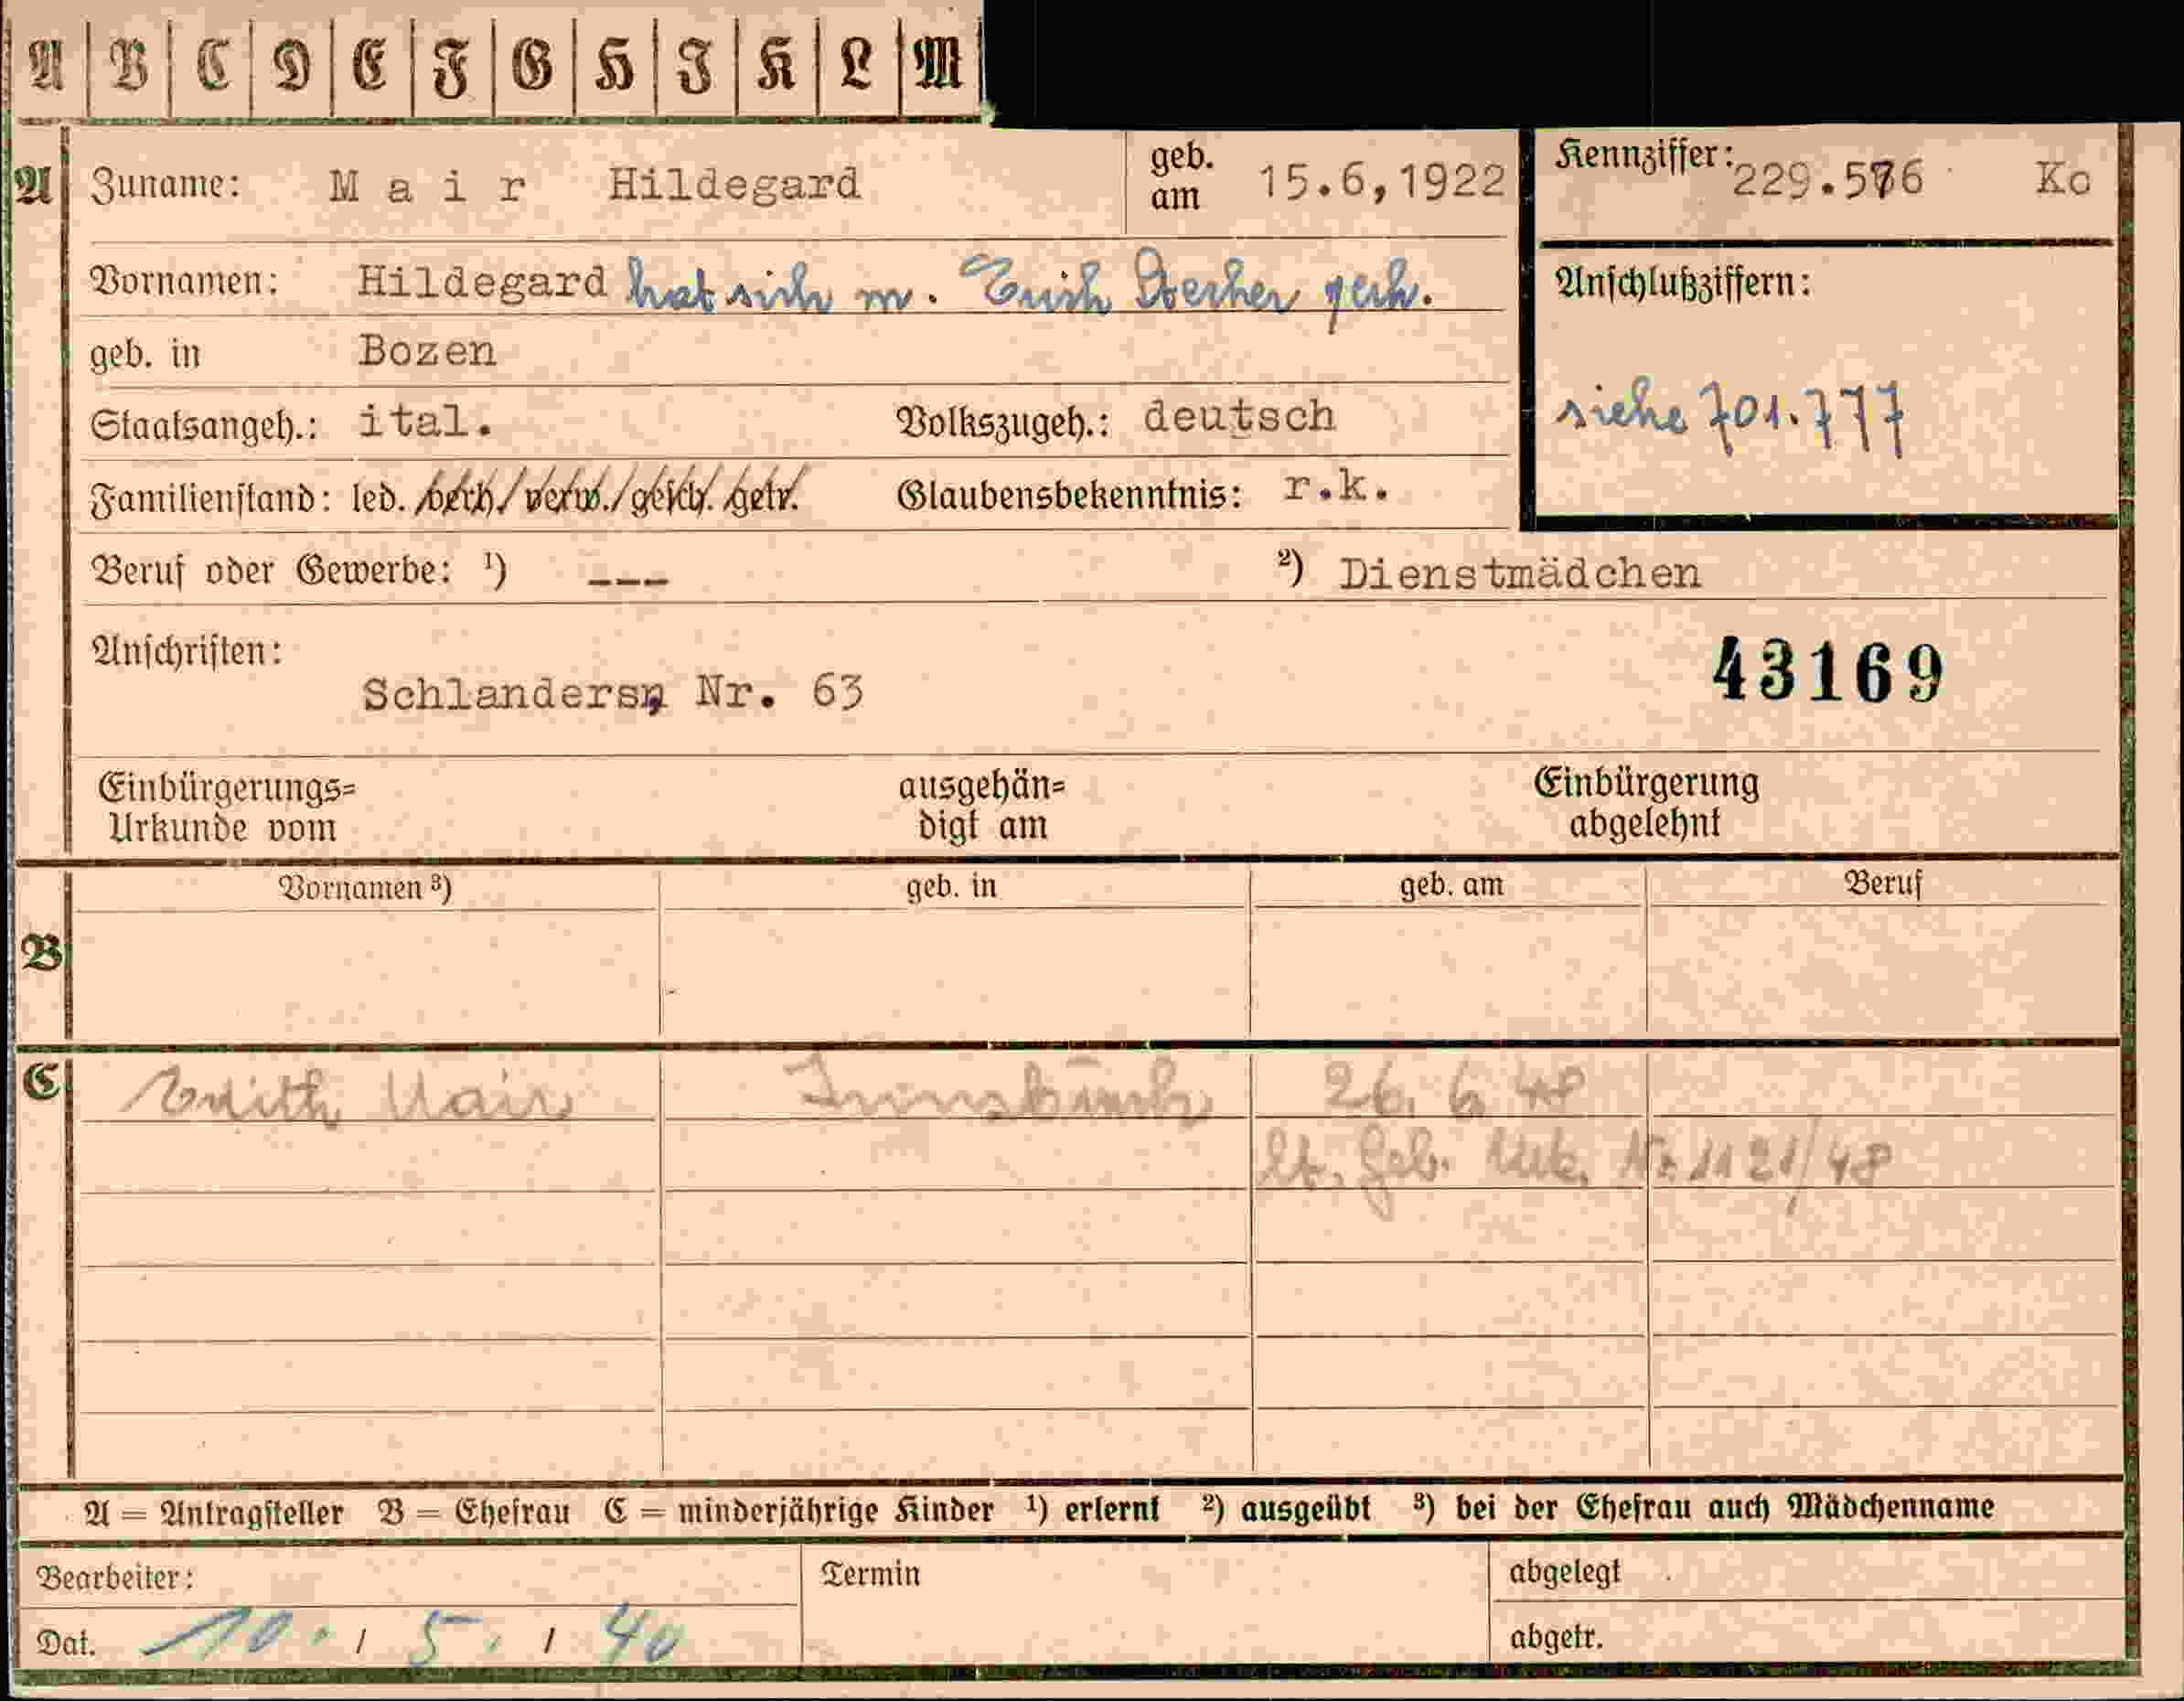 A B C D E F G H J K L M
A Zuname: M a i r Hildegard geb. am 15.6,1922 Kennziffer: 229.576 Ko
Vornamen: Hildegard hat sich m. Erich Stecher verh.
Anschlußziffern:
geb. in Bozen
siehe 701.777
Staatsangeh.: ital. Volkszugeh.: deutsch
Familienstand: led. /verh./ verw./ gesch. getr. Glaubensbekenntnis: r.k.
Beruf oder Gewerbe: ¹) --- ²) Dienstmädchen
Anschriften:
43169
Schlanders, Nr. 63
Einbürgerungs= ausgehän= Einbürgerung
Urkunde vom digt am abgelehnt
Vornamen ³) geb. in geb. am Beruf
B
C Edith Mair Innsbruck 26. 6 48
lt. Geb. Urk. Nr. 1121/48
A = Antragsteller B = Ehefrau C = minderjährige Kinder ¹) erlernt ²) ausgeübt ³) bei der Ehefrau auch Mädchenname
Bearbeiter: Termin abgelegt
Dat. 10. / 5. / 40 abgetr.